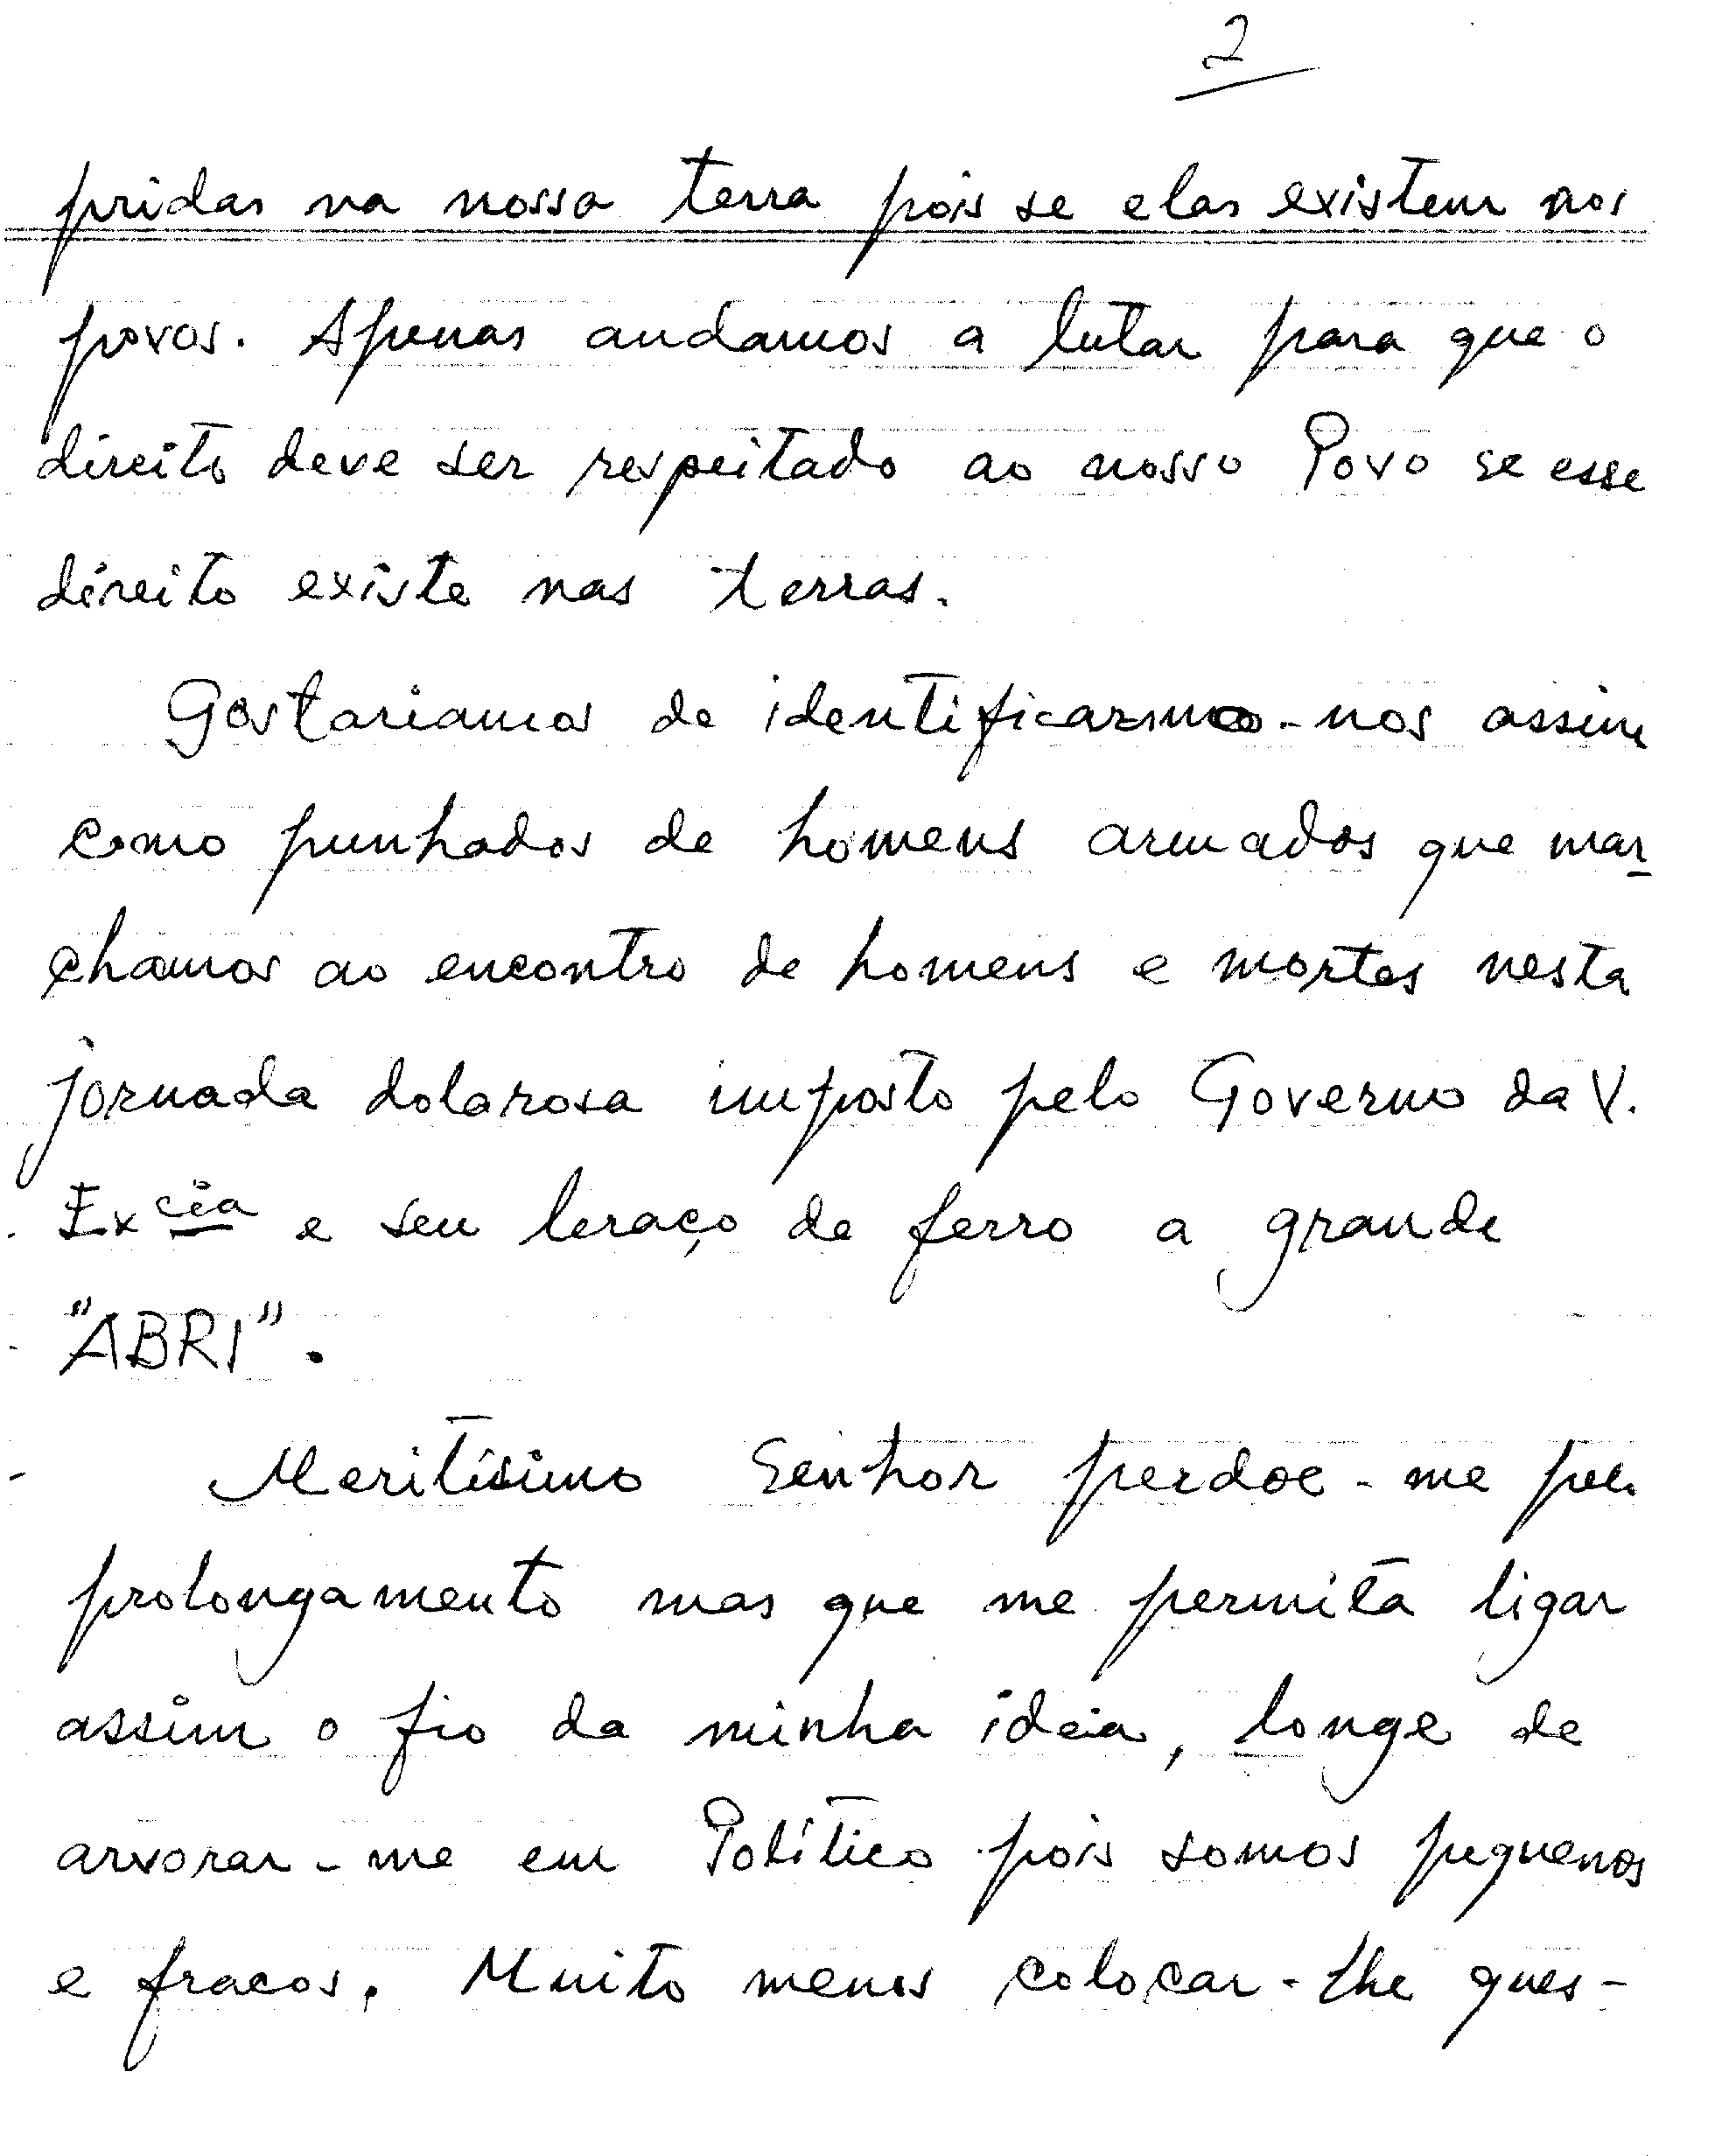 2
pridas na nossa terra pois se elas existem nos
povos. Apenas andamos a lutar para que o
direito deve ser respeitado ao nosso Povo se esse
direito existe nas terras.
Gostariamos de identificarmo-nos assim
como punhados de homens armados que mar-
chamos ao encontro de homens e mortes nesta
jornada dolarosa imposto pelo Governo da V.
Excia e seu braço de ferro a grande
"ABRI".
Meritísimo Senhor perdoe-me pelo
prolongamento mas que me permita ligar
assim o fio da minha ideia, longe de
arvorar-me em Político pois somos pequenos
e fracos. Muito menos colocar-lhe ques-